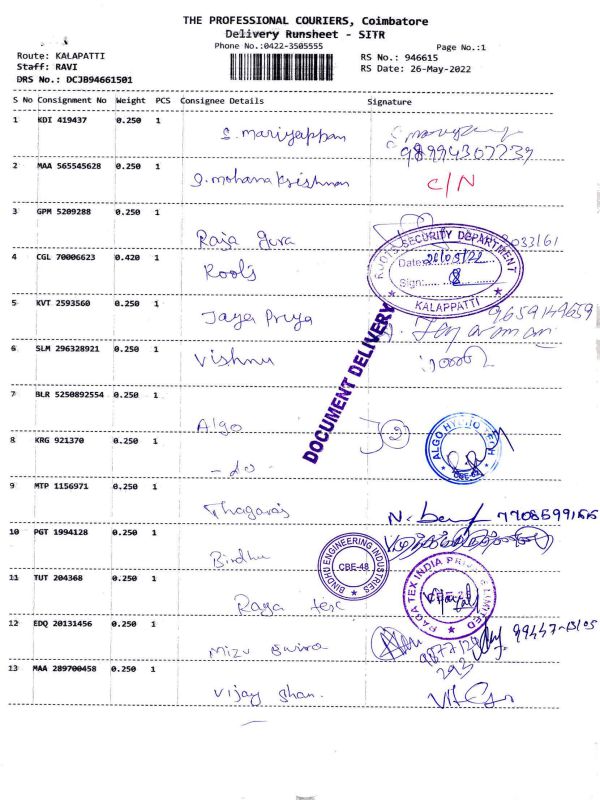 THE PROFESSIONAL COURIERS, Coimbatore
Delivery Runsheet - SITR
Phone No.:0422-3505555
Page No.:1
Route: KALAPATTI
RS No.: 946615
Staff: RAVI
RS Date: 26-May-2022
DRS No.: DCJB94661501
S No Consignment No Weight PCS Consignee Details Signature
1 KDI 419437 0.250 1
S. Mariyappan
2 MAA 565545628 0.250 1
S. mohana Krishnan C/N
3 GPM 5209288 0.250 1
Raja Guru
4 CGL 70006623 0.420 1
Roots
ROOTS SECURITY DEPARTMENT
Date: 26/05/22
Sign:
KALAPPATTI
5 KVT 2593560 0.250 1
Jaya Priya 9659149659
6 SLM 296328921 0.250 1
Vishnu
DOCUMENT DELIVERY
7 BLR 5250892554 0.250 1
Algo 2
8 KRG 921370 0.250 1
- do -
ALGO HYDRO TECH
9 MTP 1156971 0.250 1
Thagaraj
10 PGT 1994128 0.250 1
Bindhu
BINDHU ENGINEERING INDUSTRIES
CBE-48
11 TUT 204368 0.250 1
Raga tex
RAGA TEX INDIA PRIVATE LIMITED
12 EDQ 20131456 0.250 1
13 MAA 289700458 0.250 1
Vijay